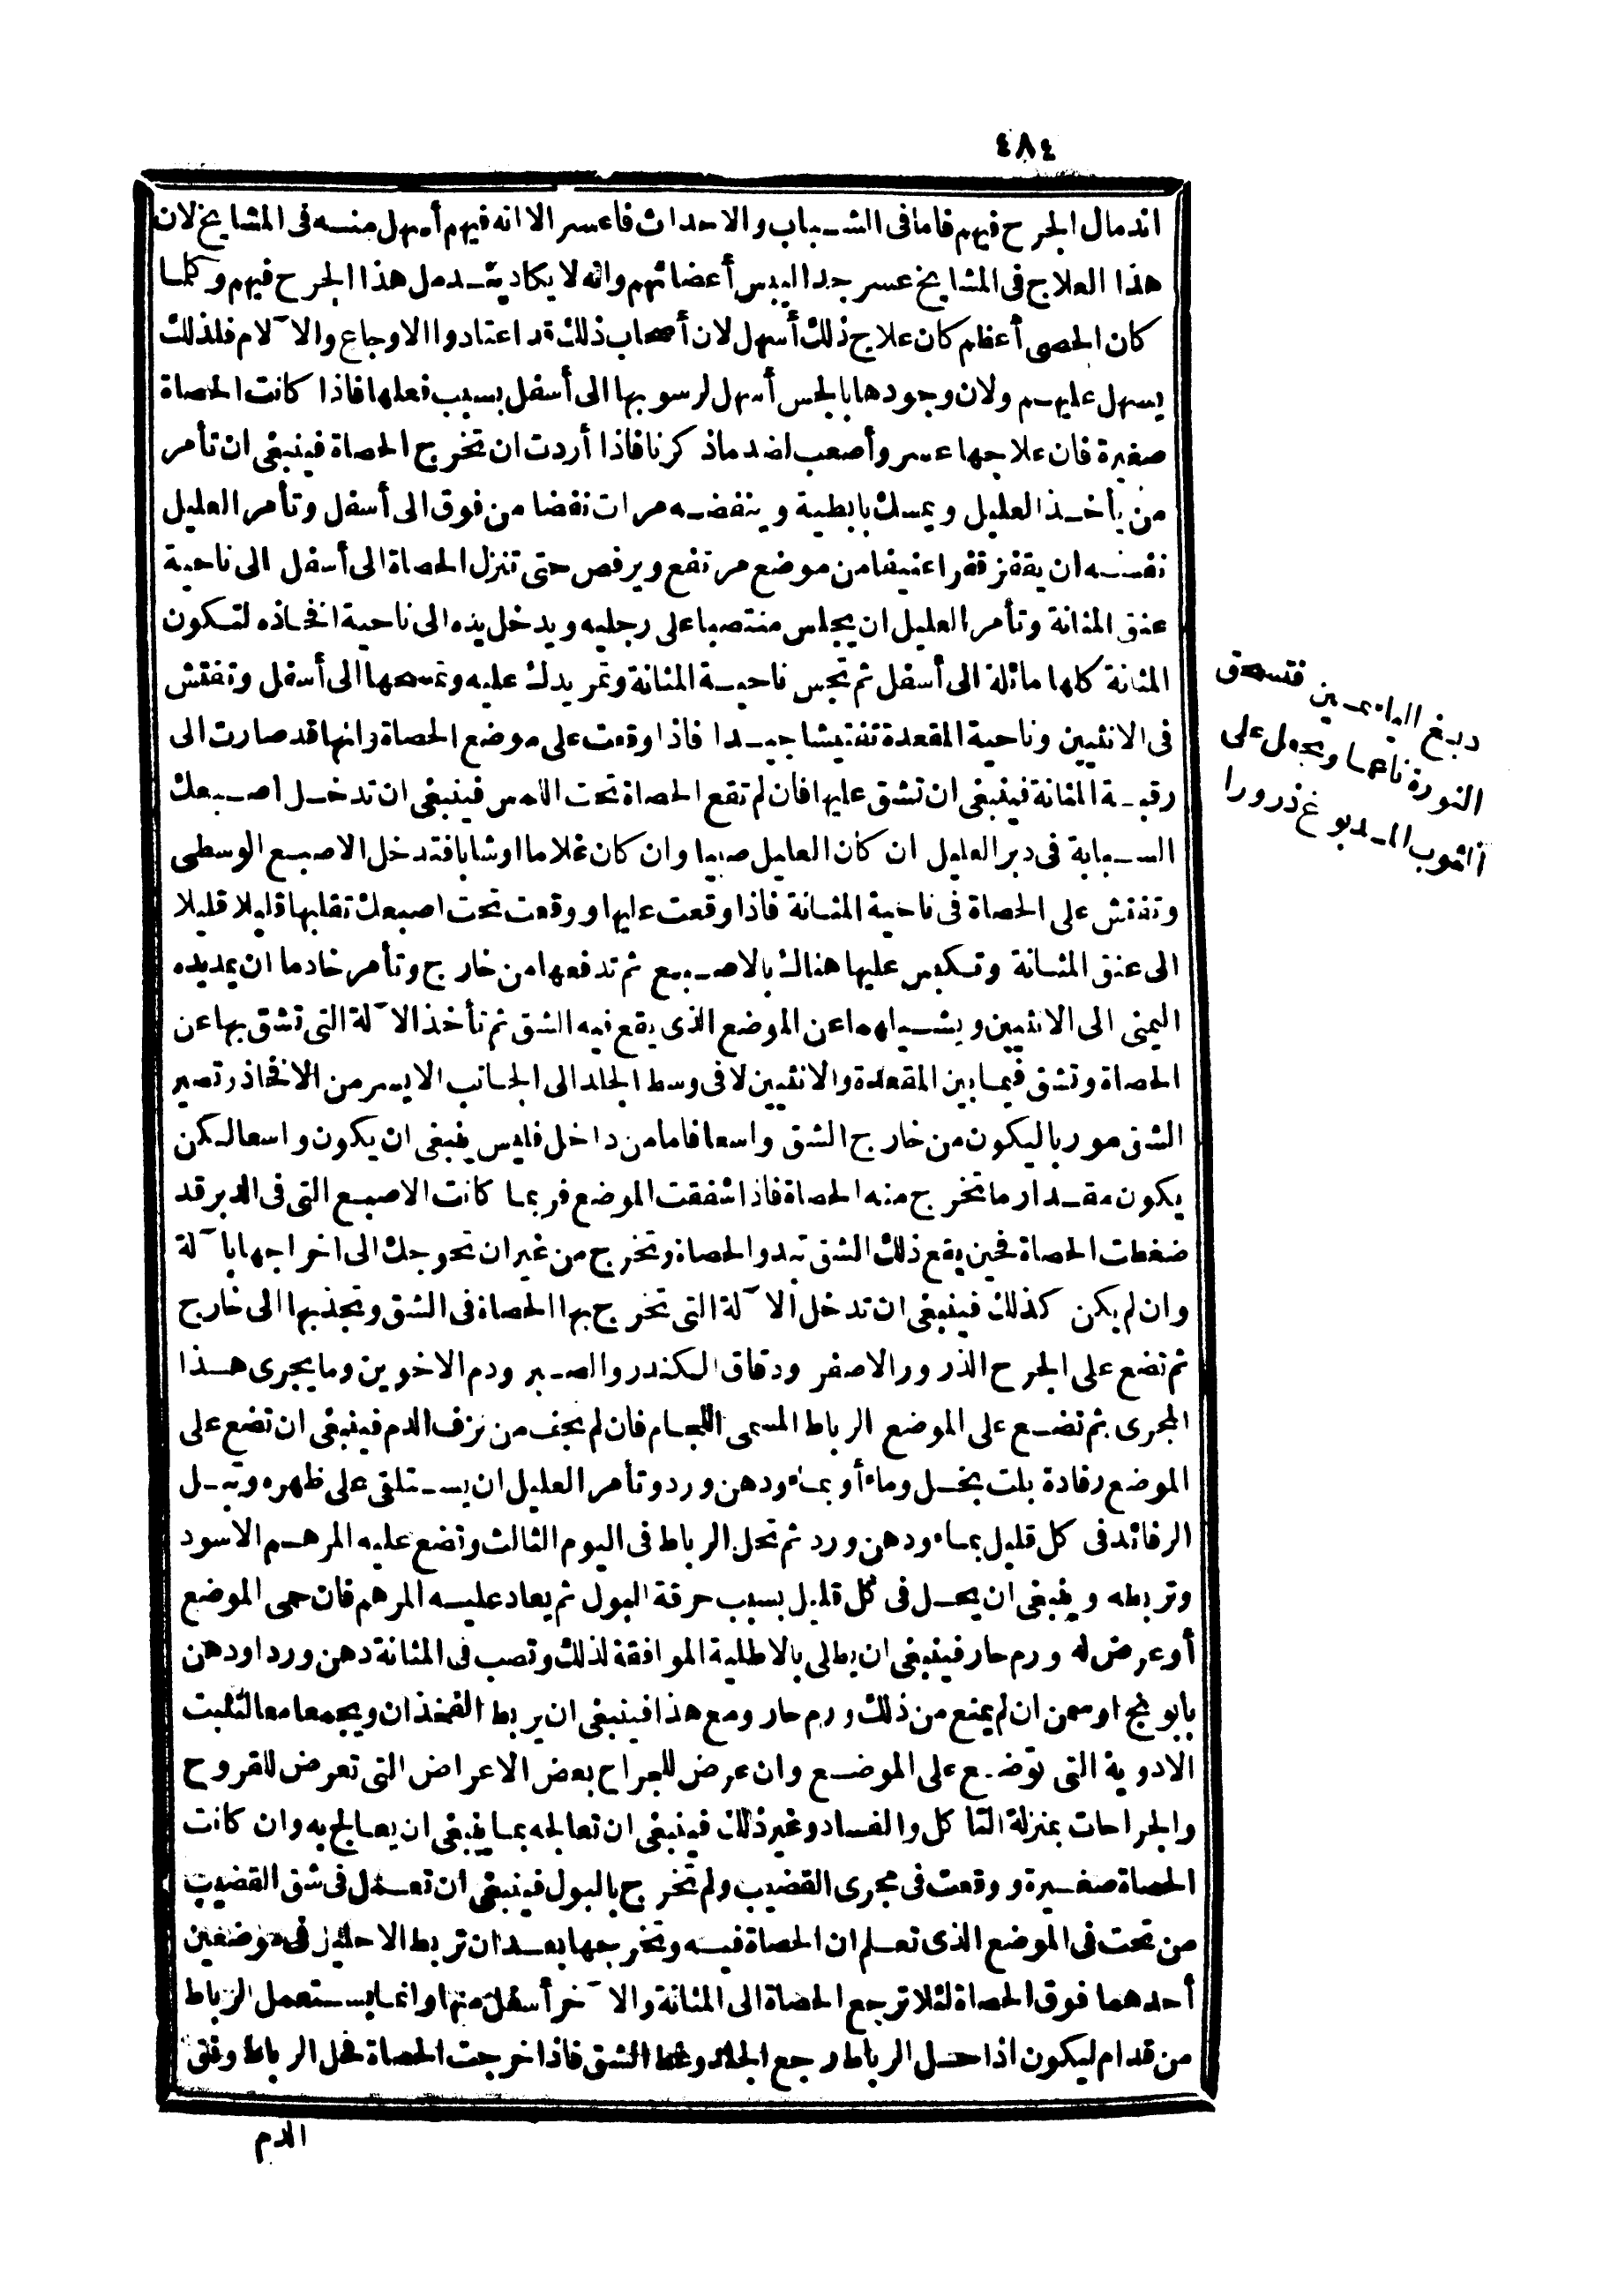 ٤٨٤
اندمال الجرح فيهم فاما فى الشباب والاحداث فاعسر الا انه فيهم أسهل منه فى المشايخ لان
هذا العلاج فى المشايخ عسر جدا ليبس أعضائهم وانه لا يكاد يندمل هذا الجرح فيهم وكلما
كان الحصى أعظم كان علاج ذلك أسهل لان أصحاب ذلك قد اعتادوا الاوجاع والآلام فلذلك
يسهل عليهم ولان وجودها بالجس أسهل لرسوبها الى أسفل بسبب فعلها فاذا كانت الحصاة
صغيرة فان علاجها عسر وأصعب لضد ماذكرنا فاذا أردت ان تخرج الحصاة فينبغى ان تأمر
من يأخذ العليل ويمسك بابطية وينفضه مرات نفضا من فوق الى أسفل وتأمر العليل
نفسه ان يقفز قفزا عنيفا من موضع مرتفع ويرفص حتى تنزل الحصاة الى أسفل الى ناحية
عنق المثانة وتأمر العليل ان يجلس منتصبا على رجليه ويدخل يده الى ناحية افخاذه لتكون
المثانة كلها مائلة الى أسفل ثم تجس ناحية المثانة وتمر يدك عليه وتمسحها الى أسفل وتفتش
فى الانثيين وناحية المقعدة تفتيشا جيدا فاذا وقعت على موضع الحصاة وانها قد صارت الى
رقبة المثانة فينبغى ان تشق عليها فان لم تقع الحصاة تحت اللمس فينبغى ان تدخل اصبعك
السبابة فى دبر العليل ان كان العليل صبيا وان كان غلاما اوشابا فتدخل الاصبع الوسطى
وتفتش على الحصاة فى ناحية المثانة فاذا وقعت عليها ووقعت تحت اصبعك تقلبها قليلا قليلا
الى عنق المثانة وتكبس عليها هناك بالاصبع ثم تدفعها من خارج وتأمر خادما ان يمد يده
اليمنى الى الانثيين ويشيلهما عن الموضع الذى يقع فيه الشق ثم تأخذ الآلة التى تشق بها عن
الحصاة وتشق فيما بين المقعدة والانثيين لا فى وسط الجلد الى الجانب الايسر من الافخاذ وتصير
الشق موربا ليكون من خارج الشق واسعا فاما من داخل فليس ينبغى ان يكون واسعا لكن
يكون مقدار ما تخرج منه الحصاة فاذا شققت الموضع فربما كانت الاصبع التى فى الدبر قد
ضغطت الحصاة فحين يقع ذلك الشق تبدو الحصاة وتخرج من غير ان تحوجك الى اخراجها بآلة
وان لم يكن كذلك فينبغى ان تدخل الآلة التى تخرج بها الحصاة فى الشق وتجذبها الى خارج
ثم تضع على الجرح الذرور الاصفر ودقاق الكندر والصبر ودم الاخوين وما يجرى هذا
المجرى ثم تضع على الموضع الرباط المسمى اللجام فان لم يجف من نزف الدم فينبغى ان تضع على
الموضع رفادة بلت بخل وماء أو بماء ودهن ورد وتأمر العليل ان يستلقى على ظهره وتبل
الرفائد فى كل قليل بماء ودهن ورد ثم تحل الرباط فى اليوم الثالث وتضع عليه المرهم الاسود
وتربطه وينبغى ان يحل فى كل قليل بسبب حرقة البول ثم يعاد عليه المرهم فان حمى الموضع
أوعرض له ورم حار فينبغى ان يطلى بالاطلية الموافقة لذلك وتصب فى المثانة دهن ورد اودهن
بابونج اوسمن ان لم يمنع من ذلك ورم حار ومع هذا فينبغى ان يربط الفخذان ويجمعا معا لتثبت
الادوية التى توضع على الموضع وان عرض للجراح بعض الاعراض التى تعرض للقروح
والجراحات بمنزلة التاكل والفساد وغير ذلك فينبغى ان تعالجه بما ينبغى ان يعالج به وان كانت
الحصاة صغيرة ووقعت فى مجرى القضيب ولم تخرج بالبول فينبغى ان تعمل فى شق القضيب
من تحت فى الموضع الذى تعلم ان الحصاة فيه وتخرجها بعد ان تربط الاحليل فى موضعين
أحدهما فوق الحصاة لئلا ترجع الحصاة الى المثانة والآخر أسفل منها وانما يستعمل الرباط
من قدام ليكون اذا حل الرباط رجع الجلد وغط الشق فاذا خرجت الحصاة فحل الرباط ونق
الدم
دبغ الياسمين فتسحق
النورة ناعما ويجعل على
الثوب المدبوغ ذرورا